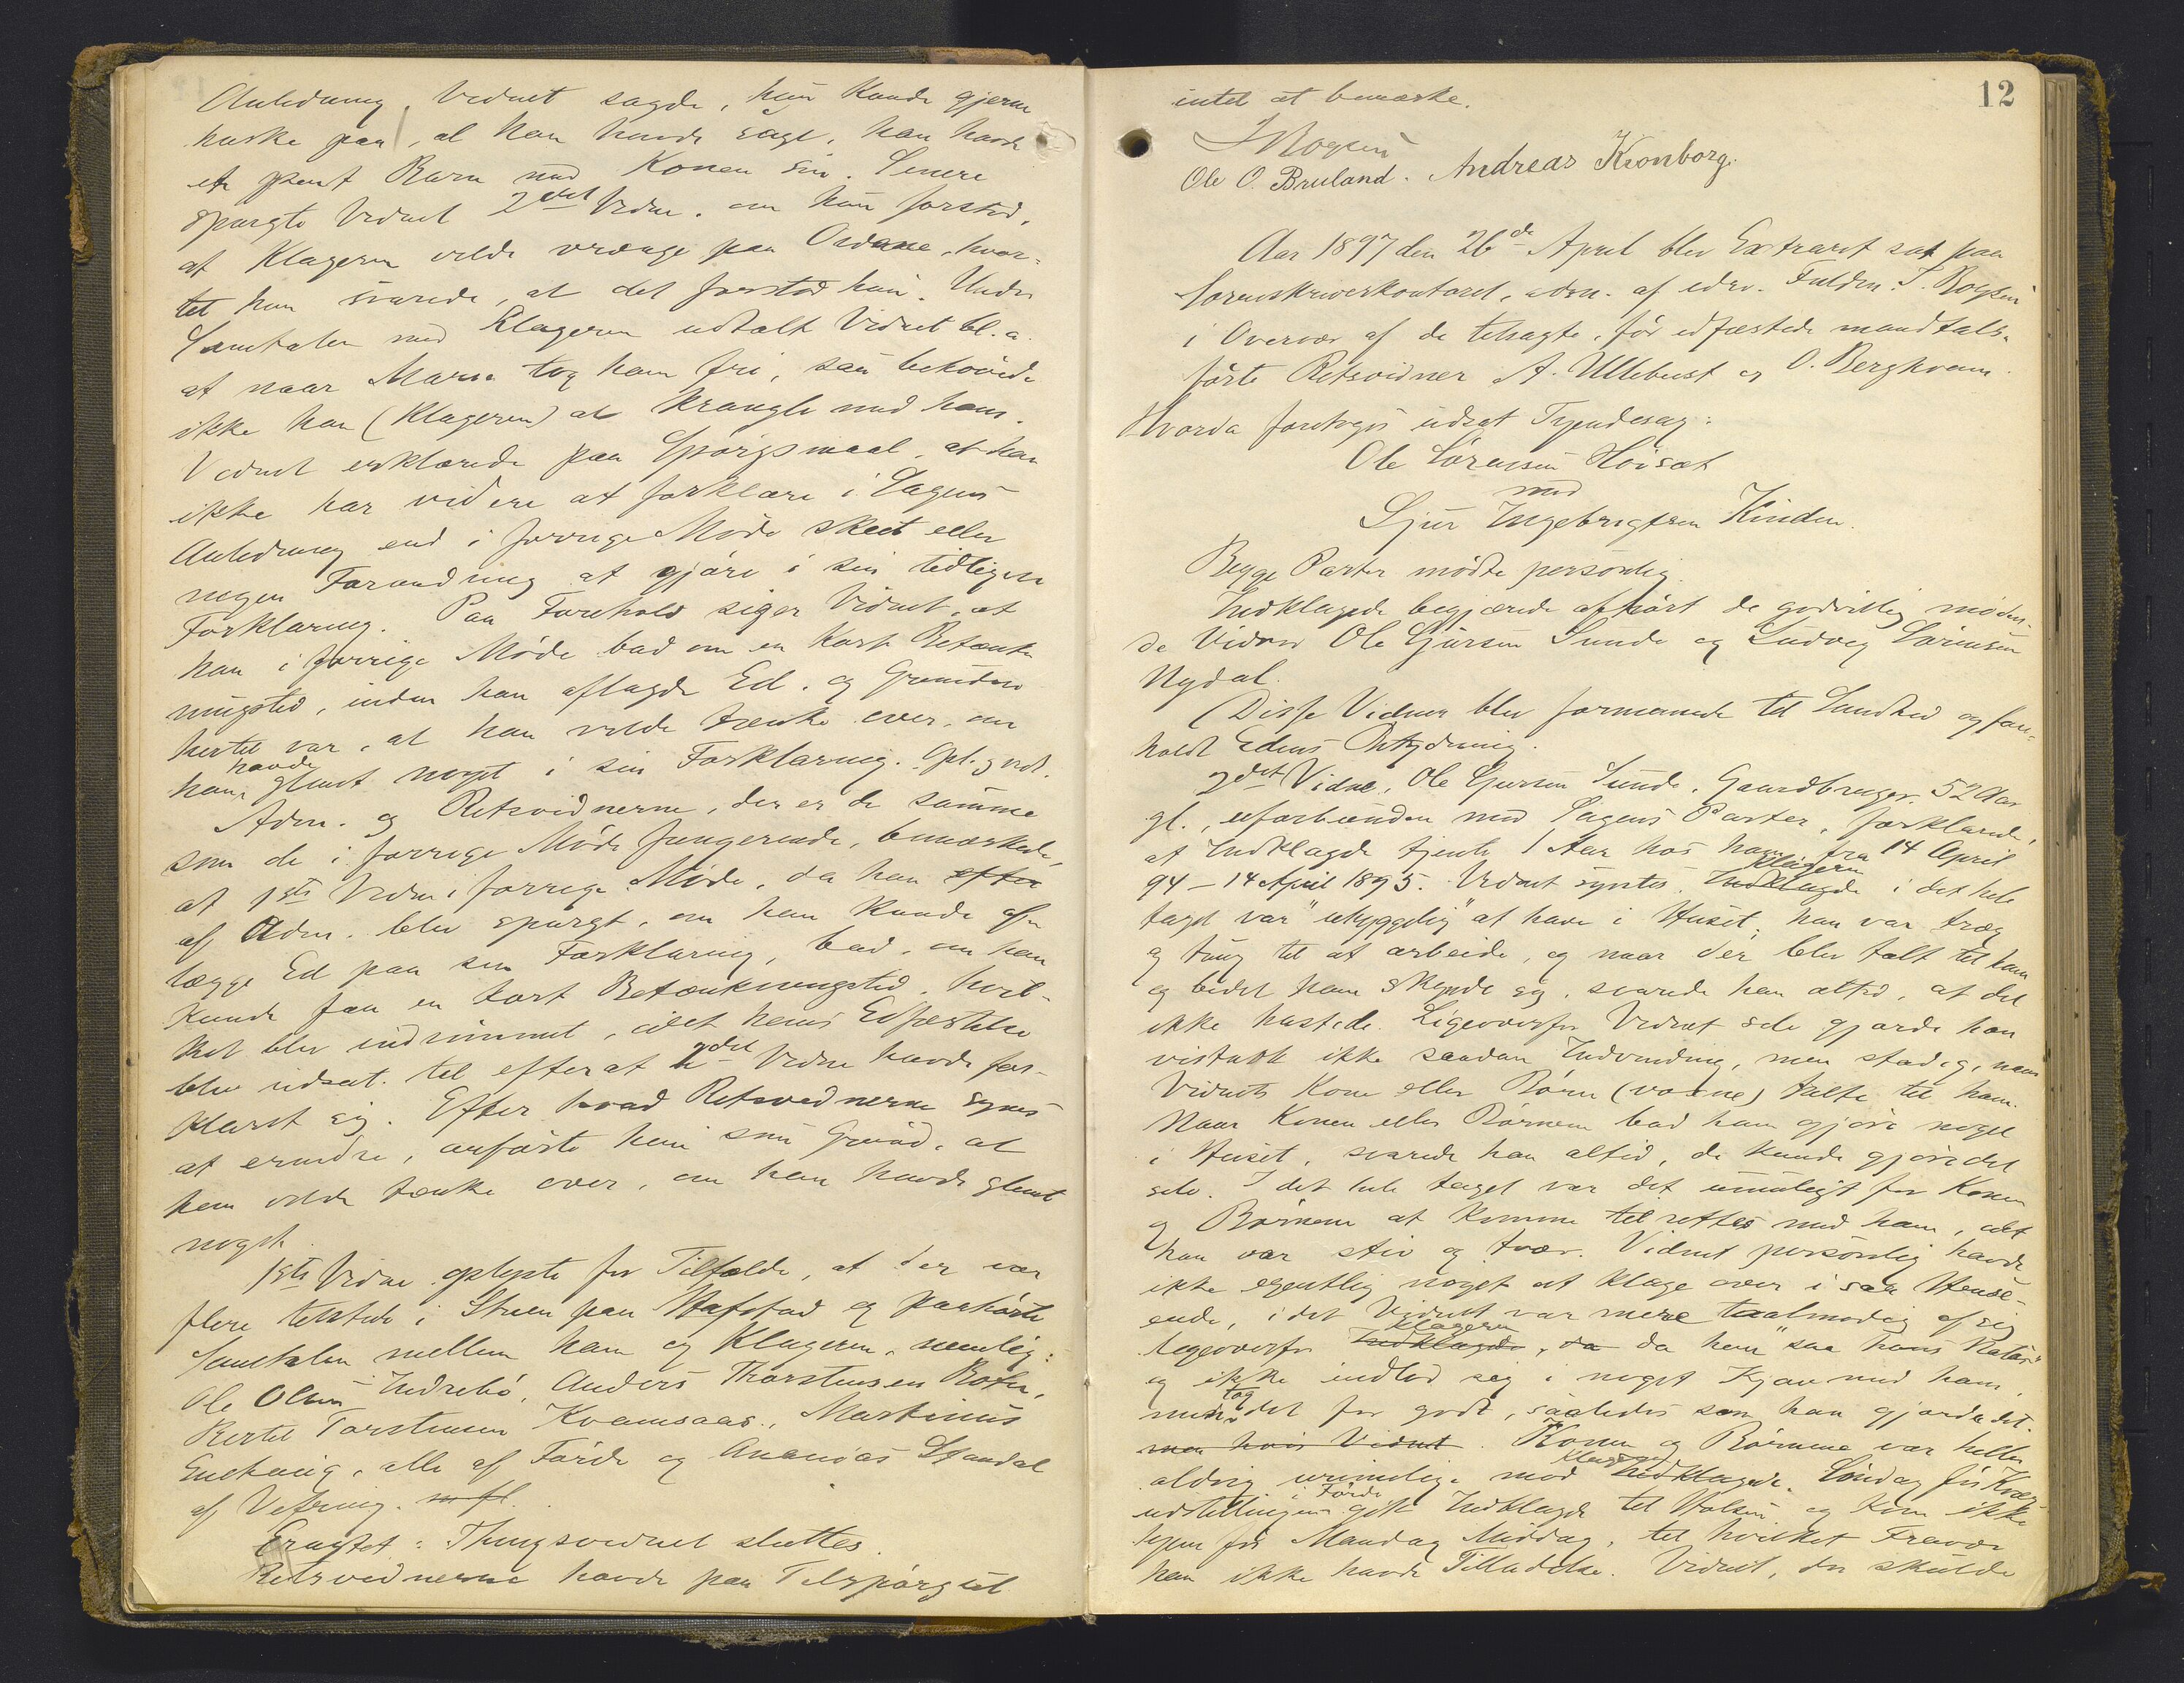 Anledning. Vidnet sagde, hun kunde gjerne
huske paa, at han havde sagt, han havde
et pent Barn med Konen sin. Senere
spurgte Vidnet 2det Vidne, om hun forstod,
at Klageren vilde vrænge paa Ordene, hvor-
til hun svarede, at det forstod hun. Under
Samtalen med Klageren udtalte Vidnet bl. a.
at naar Maren tog ham fri, saa behøvede
ikke han (Klageren) at krangle med ham.
Vidnet erklærede paa Spørgsmaal, at han
ikke har videre at forklare i Sagens
Anledning end i forrige Møde skeet eller
nogen Forandring at gjøre i sin tidligere
Forklaring. Paa Forehold siger Vidnet, at
han i forrige Møde bad om en kort Betænk-
ningstid, inden han aflagde Ed, og Grunden
hertil var, at han vilde tænke over, om
han havde glemt noget i sin Forklaring. Opl. g vedt.
Adm. og Retsvidnerne, der er de samme
som de i forrige Møde fungerende, bemærkede,
at 1ste Vidne i forrige Møde, da han efter
af Adm. blev spurgt, om han kunde af-
lægge Ed paa sin Forklaring, bad, om han
kunde faa en kort Betænkningstid, hvil-
ket blev indrømmet, idet hans Edfæstelse
blev udsat til efterat 2det Vidne havde for-
klaret sig. Efter hvad Retsvidnerne synes
at erindre, anførte han som Grund, at
han vilde tænke over, om han havde glemt
noget.
1ste Vidne oplyste for Tilfælde, at der var
flere tilstede i Stuen paa Hafstad og paahørte
Samtalen mellem ham og Klageren, nemlig:
Ole Olsen Indrebø, Anders Thorstensen Boten,
Bertel Torstensen Kvamsaas, Martinus
Engebøvig, alle af Førde og Ananias Standal
af Vefring. m fl.
Eragtet: Thingsvidnet sluttes.
Retsvidnerne havde paa Tilspørgsel
12
intet at bemærke.
J Boysen
Ole O. Bruland. Andreas Kronborg.
Aar 1897 den 26de April blev Extraret sat paa
Sorenskriverkontoret, adm. af edsv. Fuldm. J. Boysen
i Overvær af de tilsagte, før edfæstede mandtals-
førte Retsvidner A. Ullebust og O. Bergkvam.
Hvorda foretoges udsat Tyendesag:
Ole Sørensen Høisæt
mod
Sjur Ingebrigtsen Kinden.
Begge Parter mødte personlig.
Indklagede begjærede afhørt de godvillig møden-
de Vidner Ole Gjursen Sunde og Ludvig Sørensen
Nydal.
Disse Vidner blev formanede til Sandhed og fore-
holdt Edens Betydning.
2det Vidne, Ole Gjursen Sunde, Gaardbruger, 52 Aar
gl., uforbunden med Sagens Parter, forklarede,
at Indklagde tjente 1 Aar hos ham fra 14 April
94 – 14 April 1895. Vidnet syntes, Indklagde Klageren i det hele
taget var "uhyggelig" at have i Huset; han var træg
og tung til at arbeide, og naar der blev talt til ham
og bedet ham skynde sig, svarede han altid, at det
ikke hastede. Ligeoverfor Vidnet selv gjorde han
vistnok ikke saadan Indvending, men stadig, naar
Vidnets Kone eller Børn (voxne) talte til ham.
Naar Konen eller Børnene bad ham gjøre noget
i Huset, svarede han altid, de kunde gjøre det
selv. I det hele taget var det umuligt for Konen
og Børnene at komme tilrettes med ham, idet
han var stiv og tvær. Vidnet personlig havde
ikke egentlig noget at klage over i saa Hense-
ende, idet Vidnet var mere taalmodig af sig
ligeoverfor Indklagede klageren, da da han "saa hans Natur"
og ikke indlod sig i noget Kjæv med ham,
men tog det for godt, saaledes som han gjorde det.
men hvis Vidnet. Konen og Børnene var heller
aldrig urimelige mod Indklagede Klageren. Søndag før Kvæg-
udstillingen i Førde gik Indklagde til Holsen og kom ikke
igjen før Mandag Middag, til hvilket Fravær
han ikke havde Tilladelse. Vidnet, der skulde